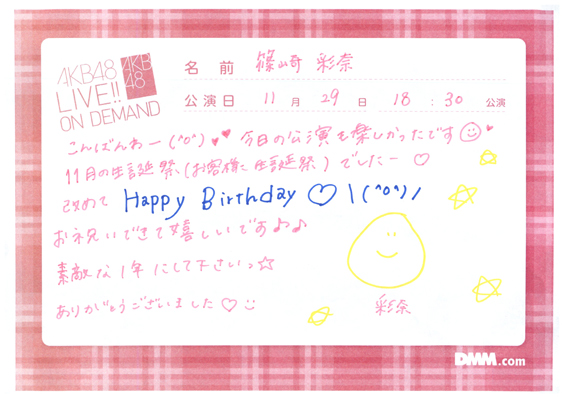 AKB48
LIVE!!
ON DEMAND
AKB
48
名前 篠崎 彩奈
公演日 11月29日 18:30 公演
こんばんわー(^o^)♥♥ 今日の公演も楽しかったです☺♥
11月の生誕祭(お客様に生誕祭)でしたー♡
改めて Happy Birthday ♡ \(^o^)/
お祝いできて嬉しいです♪♪
素敵な1年にして下さいっ☆
ありがとうございました♡☺
彩奈
DMM.com